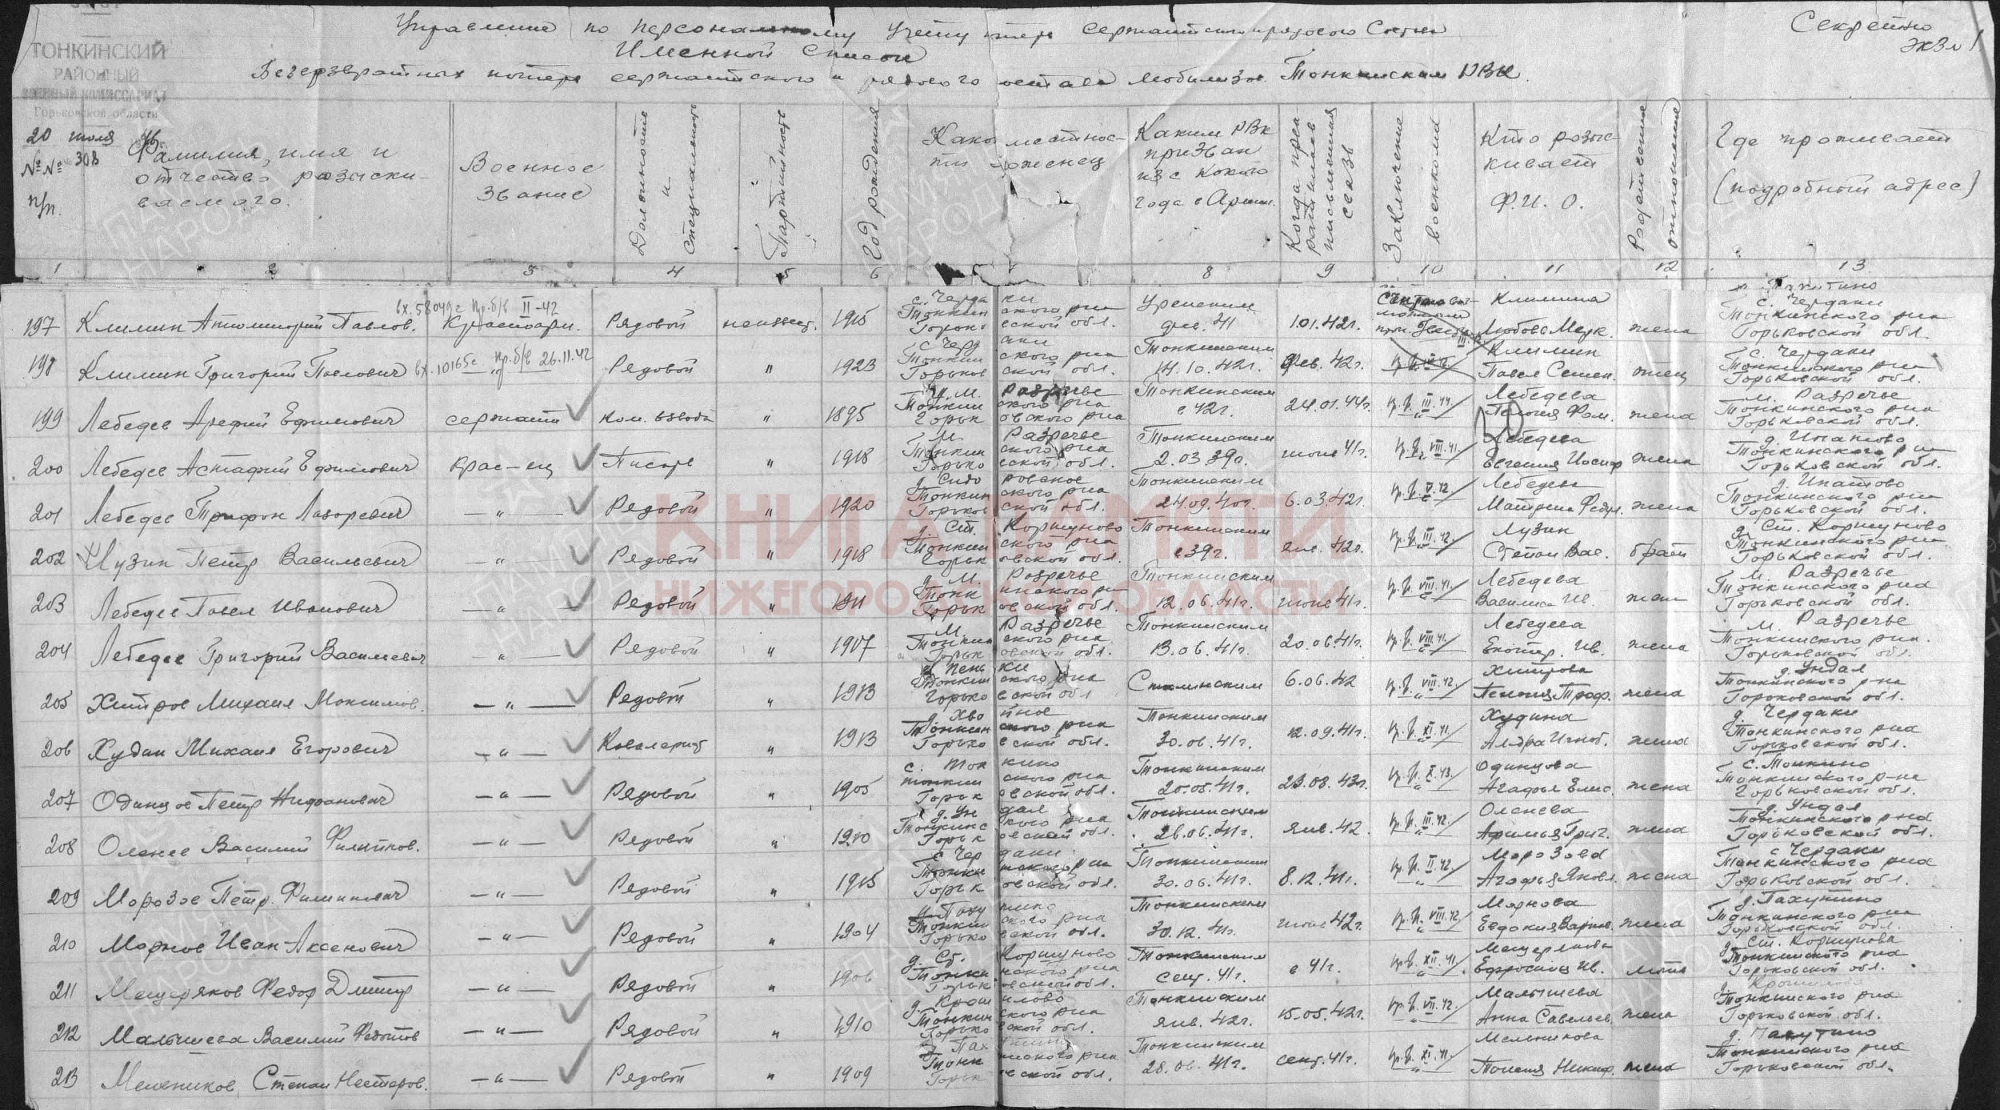 Секретно
Экз № 1
Управление по персональному учёту потерь сержантского и рядового состава
Именной список
безвозвратных потерь сержантского и рядового состава мобилизов. Тонкинским РВК.
ТОНКИНСКИЙ
РАЙОННЫЙ
ВОЕННЫЙ КОМИССАРИАТ
Горьковской области
20 июля
№ 308
№№ п/п.
Фамилия, имя и отчество разыскиваемого.
Военное звание
Должность и специальность
Партийность
Год рождения
Какой местности уроженец
Каким РВК призван и с какого года в Армии
Когда прекратилась письменная связь
Заключение военкома
Кто разыскивает Ф.И.О.
Родственные отношения
Где проживает (подробный адрес)
1 2 3 4 5 6 8 9 10 11 12 13
197 Климин Павлов. Красноарм. Рядовой неизвест. 1915 с. Чердаки Тонкинского р-на Горьковской обл. Уренским 41 1.01.42г. Климина Любовь Марк. жена с. Чердаки Тонкинского р-на Горьковской обл.
вх. 10165с пр.б/в 26.11.42
198 Климин Григорий Павлович " Рядовой " 1923 с. Чердаки Тонкинского р-на Горьковской обл. Тонкинским 14.10.42г. фев. 42г. Климин Павел Семен. отец с. Чердаки Тонкинского р-на Горьковской обл.
199 Лебедев Арефий Ефимович сержант ком. взвода " 1895 п. М. Разречье Тонкинского р-на Горьковской обл. Тонкинским с 42г. 24.01.44г. пр. б. III.44. Лебедева жена м. Разречье Тонкинского р-на Горьковской обл.
200 Лебедев Астафий Ефимович крас-ец Писарь " 1918 м. Разречье Тонкинского р-на Горьковской обл. Тонкинским 2.03.39г. июнь 41г. пр. б. VIII.41. Лебедева Евгения Иосиф. жена д. Ипатово Тонкинского р-на Горьковской обл.
201 Лебедев Трифон Лазаревич — " — Рядовой " 1920 Тонкинского р-на Горьковской обл. Тонкинским 24.09.40г. 6.03.42г. пр. б. V.42. Лебедева Матрена Федр. жена д. Ипатово Тонкинского р-на Горьковской обл.
202 Лузин Петр Васильевич — " — Рядовой " 1918 д. Ст. Коршуново Тонкинского р-на Горьковской обл. Тонкинским с 39г. янв. 42г. пр. б. III.42. Лузин Степан Вас. брат д. Ст. Коршуново Тонкинского р-на Горьковской обл.
203 Лебедев Павел Иванович — " — Рядовой " 1911 д. М. Разречье Тонкинского р-на Горьковской обл. Тонкинским 12.06.41г. июнь 41г. пр. б. VIII.41. Лебедева Василиса Ив. жена м. Разречье Тонкинского р-на Горьковской обл.
204 Лебедев Григорий Васильевич " Рядовой " 1907 м. Разречье Тонкинского р-на Горьковской обл. Тонкинским 13.06.41г. 20.06.41г. пр. б. VIII.41. Лебедева Екатер. Ив. жена м. Разречье Тонкинского р-на Горьковской обл.
205 Хитров Михаил Максимов. — " — Рядовой " 1913 д. Пеньки Тонкинского р-на Горьковской обл. Сталинским 6.06.42 пр. б. VIII.42. Хитрова Троф. жена д. Ундал Тонкинского р-на Горьковской обл.
206 Худин Михаил Егорович — " — Кавалерист " 1913 д. Хвойное Тонкинского р-на Горьковской обл. Тонкинским 30.06.41г. 12.09.41г. пр. б. XI.41. Худина Ал-дра Игнат. жена д. Чердаки Тонкинского р-на Горьковской обл.
207 Одинцов Петр — " — Рядовой " 1905 с. Тонкино Тонкинского р-на Горьковской обл. Тонкинским 20.05.41г. 23.08.43г. пр. б. X.43. Одинцова Агафья Елис. жена с. Тонкино Тонкинского р-на Горьковской обл.
208 Оленев Василий Филиппов. — " — Рядовой " 1910 д. Ундал Тонкинского р-на Горьковской обл. Тонкинским 26.06.41г. янв. 42 пр. б. III.42. Оленева Григ. жена д. Ундал Тонкинского р-на Горьковской обл.
209 Морозов Петр Филиппович — " — Рядовой " 1915 с. Чердаки Тонкинского р-на Горьковской обл. Тонкинским 30.06.41г. 8.12.41г. пр. б. II.42. Морозова Агафья Яковл. жена с. Чердаки Тонкинского р-на Горьковской обл.
210 Морнов Иван Аксенович — " — Рядовой " 1904 д. Пахутино Тонкинского р-на Горьковской обл. Тонкинским 30.12.41г. июнь 42г. пр. б. VIII.42. Морнова Евдокия жена д. Пахутино Тонкинского р-на Горьковской обл.
211 Мещеряков Федор Дмитр — " — Рядовой " 1906 д. Ст. Коршуново Тонкинского р-на Горьковской обл. Тонкинским сент. 41г. с 41г. пр. б. XII.41. Ефросинья Ив. мать д. Ст. Коршунова Тонкинского р-на Горьковской обл.
212 Малышева Василий Федотов — " — Рядовой " 1910 Тонкинского р-на Горьковской обл. Тонкинским янв. 42г. 15.05.42г. пр. б. VII.42. Малышева Анна Савельев. жена Тонкинского р-на Горьковской обл.
213 Мельников, Степан Нестеров. — " — Рядовой " 1909 д. Пахутино Тонкинского р-на Горьковской обл. Тонкинским 28.06.41г. сент. 41г. пр. б. XI.41. Мельникова Никиф. жена д. Пахутино Тонкинского р-на Горьковской обл.
КНИГА ПАМЯТИ
НИЖЕГОРОДСКОЙ ОБЛАСТИ
ПАМЯТЬ НАРОДА